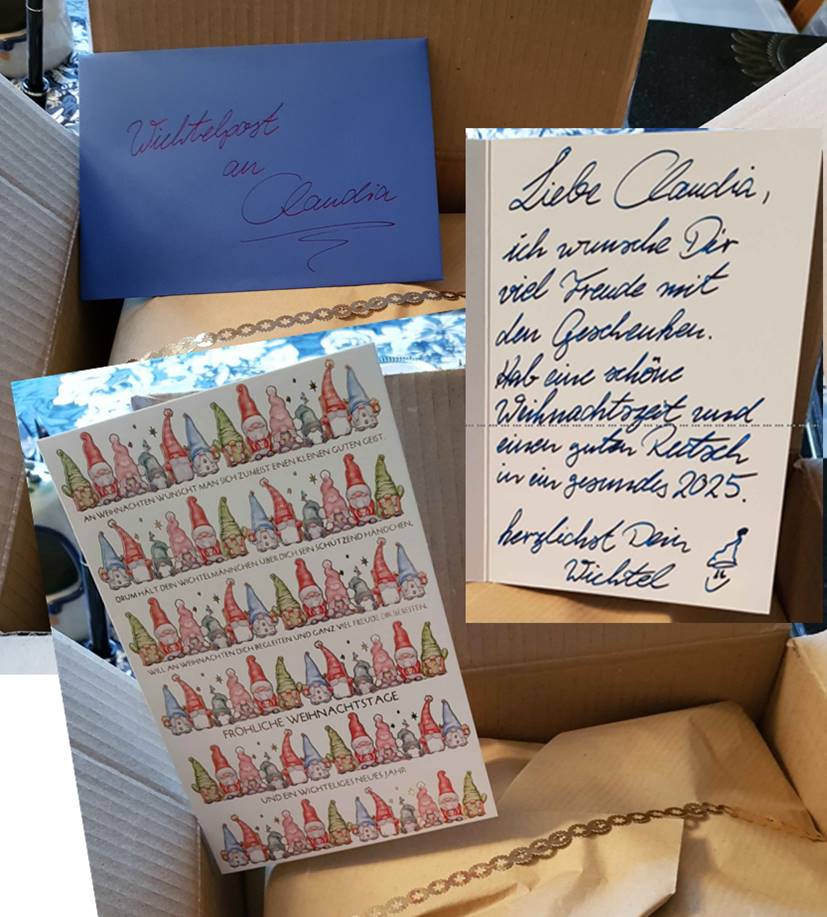 Wichtelpost
an
Claudia
Liebe Claudia,
ich wünsche Dir
viel Freude mit
den Geschenken.
Hab eine schöne
Weihnachtszeit und
einen guten Rutsch
in ein gesundes 2025.
herzlichst Dein
Wichtel
AN WEIHNACHTEN WÜNSCHT MAN SICH ZUMEIST EINEN KLEINEN GUTEN GEIST.
DRUM HÄLT DEIN WICHTELMÄNNCHEN ÜBER DICH SEIN SCHÜTZEND HÄNDCHEN,
WILL AN WEIHNACHTEN DICH BEGLEITEN UND GANZ VIEL FREUDE DIR BEREITEN.
FRÖHLICHE WEIHNACHTSTAGE
UND EIN WICHTELIGES NEUES JAHR